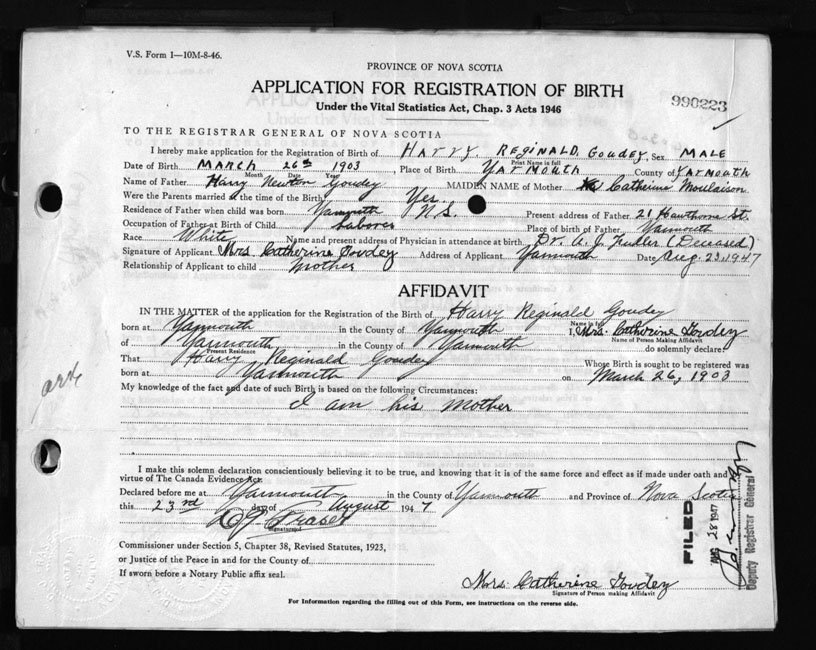 V.S. Form 1—10M-8-46.
PROVINCE OF NOVA SCOTIA
APPLICATION FOR REGISTRATION OF BIRTH
Under the Vital Statistics Act, Chap. 3 Acts 1946
990223
TO THE REGISTRAR GENERAL OF NOVA SCOTIA
I hereby make application for the Registration of Birth of Harry Reginald Goudey, Sex Male
Print Name in full
Date of Birth March 26th 1903 Place of Birth Yarmouth County of Yarmouth
Month Date Year
Name of Father Harry Newton Goudey MAIDEN NAME of Mother Catherine Moulaison
Were the Parents married at the time of the Birth Yes.
Residence of Father when child was born Yarmouth N.S. Present address of Father 21 Hawthorne St.
Occupation of Father at Birth of Child Laborer Place of birth of Father Yarmouth
Race White Name and present address of Physician in attendance at birth Dr. A. J. Fuller (Deceased)
Signature of Applicant Mrs Catherine Goudey Address of Applicant Yarmouth Date Aug. 23. 1947
Relationship of Applicant to child Mother
AFFIDAVIT
IN THE MATTER of the application for the Registration of the Birth of Harry Reginald Goudey
Name in full
born at Yarmouth in the County of Yarmouth I, Mrs. Catherine Goudey
Name of Person Making Affidavit
of Yarmouth in the County of Yarmouth do solemnly declare:
Present Residence
That Harry Reginald Goudey Whose Birth is sought to be registered was
born at Yarmouth on March 26, 1903
My knowledge of the fact and date of such Birth is based on the following Circumstances:
I am his Mother
I make this solemn declaration conscientiously believing it to be true, and knowing that it is of the same force and effect as if made under oath and by
virtue of The Canada Evidence Act.
Declared before me at Yarmouth in the County of Yarmouth and Province of Nova Scotia
this 23rd day of August 1947
Fraser
Signature
Commissioner under Section 5, Chapter 38, Revised Statutes, 1923,
or Justice of the Peace in and for the County of
If sworn before a Notary Public affix seal.
Mrs. Catherine Goudey
Signature of Person making Affidavit
For Information regarding the filling out of this Form, see instructions on the reverse side.
FILED
AUG 28 1947
Deputy Registrar General